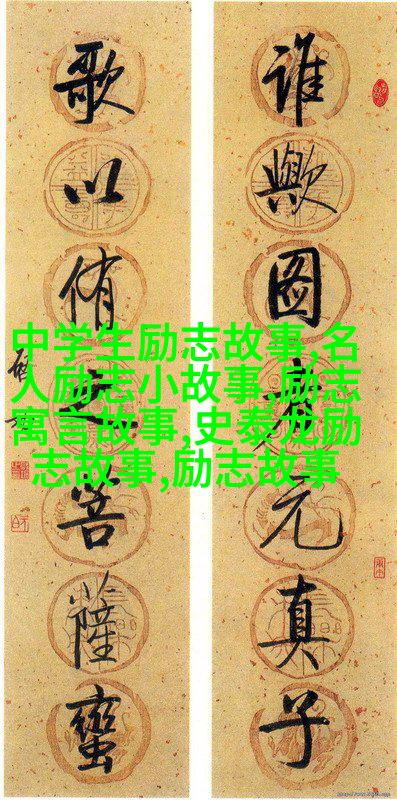 中学生励志故事,名
人励志小故事,励志
寓言故事,史泰龙励
志故事,励志故事
谁歟图元真子
歌以侑之菩薩蠻